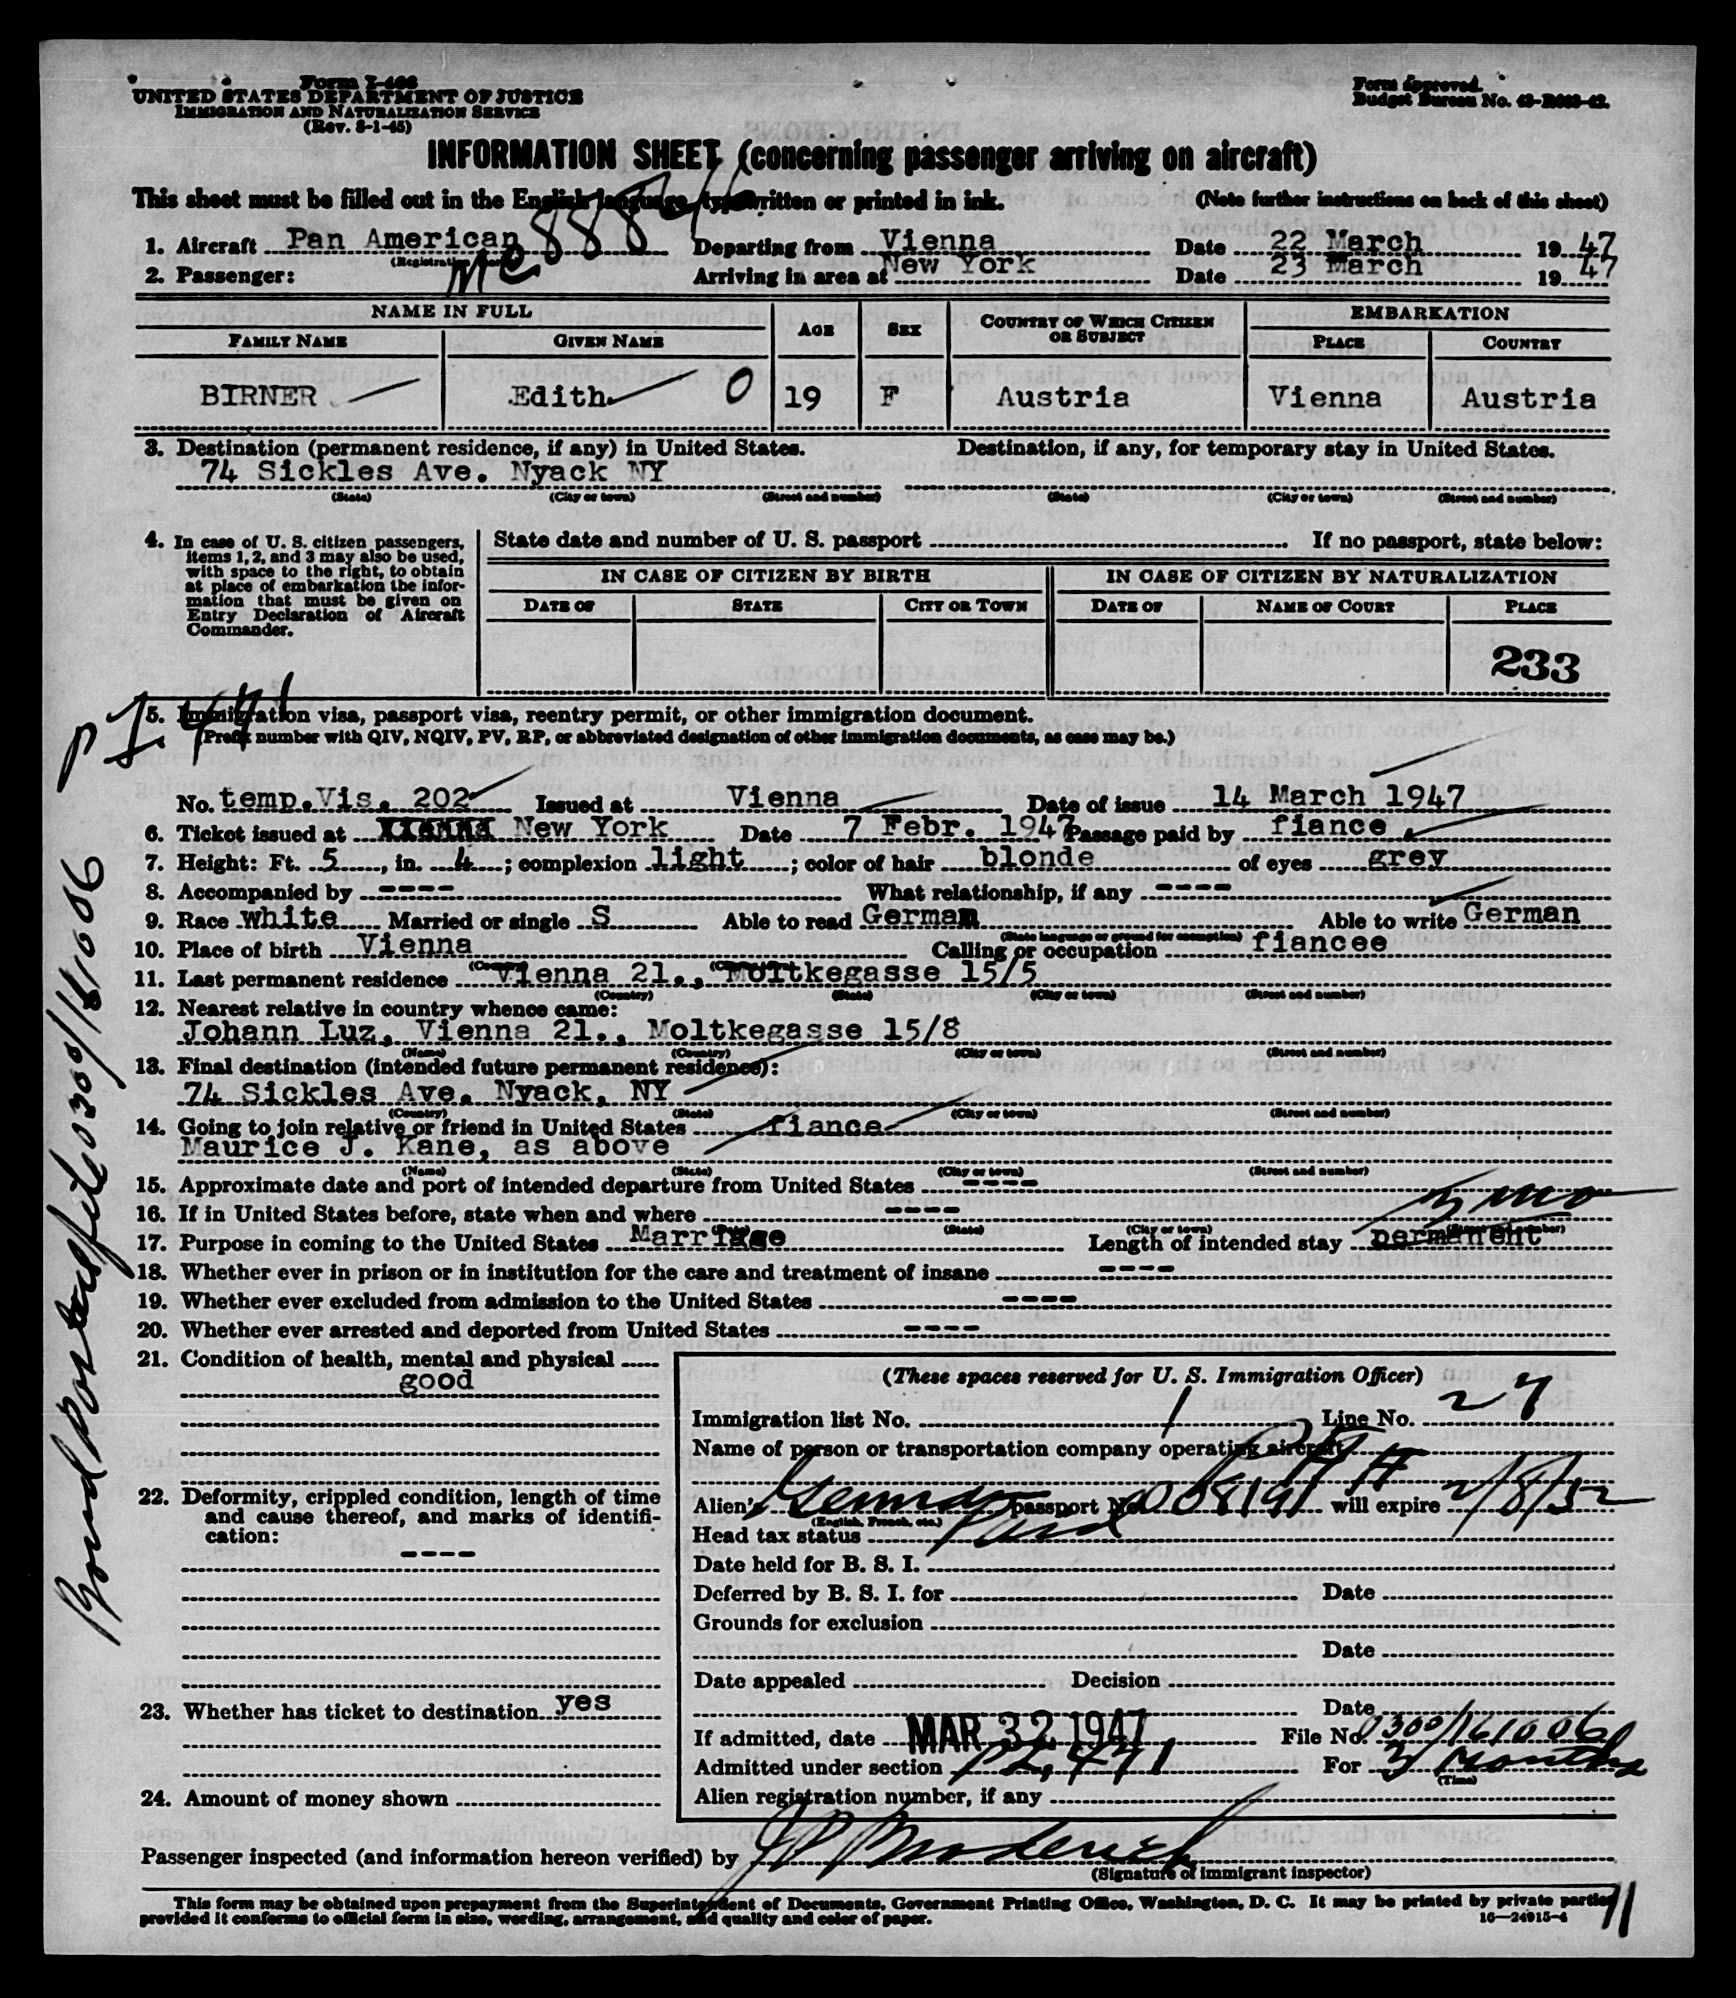 Form I-466
UNITED STATES DEPARTMENT OF JUSTICE
IMMIGRATION AND NATURALIZATION SERVICE
(Rev. 8-1-45)
Form approved.
Budget Bureau No.
INFORMATION SHEET (concerning passenger arriving on aircraft)
This sheet must be filled out in the English language, typewritten or printed in ink. (Note further instructions on back of this sheet)
1. Aircraft Pan American Departing from Vienna Date 22 March 1947
(Registration
2. Passenger: Arriving in area at New York Date 23 March 1947
NAME IN FULL AGE SEX COUNTRY OF WHICH CITIZEN OR SUBJECT EMBARKATION
FAMILY NAME GIVEN NAME PLACE COUNTRY
BIRNER Edith 0 19 F Austria Vienna Austria
3. Destination (permanent residence, if any) in United States. Destination, if any, for temporary stay in United States.
74 Sickles Ave. Nyack NY
(State) (City or town) (Street and number) (State) (City or town) (Street and number)
4. In case of U. S. citizen passengers,
items 1, 2, and 3 may also be used,
with space to the right, to obtain
at place of embarkation the infor-
mation that must be given on
Entry Declaration of Aircraft
Commander.
State date and number of U. S. passport If no passport, state below:
IN CASE OF CITIZEN BY BIRTH IN CASE OF CITIZEN BY NATURALIZATION
DATE OF STATE CITY OR TOWN DATE OF NAME OF COURT PLACE
233
5. Immigration visa, passport visa, reentry permit, or other immigration document.
(Prefix number with QIV, NQIV, PV, RP, or abbreviated designation of other immigration documents, as case may be.)
No. temp.Vis. 202 Issued at Vienna Date of issue 14 March 1947
6. Ticket issued at New York Date 7 Febr. 1947 Passage paid by fiance
7. Height: Ft. 5, in. 4; complexion light; color of hair blonde of eyes grey
8. Accompanied by ---- What relationship, if any ----
9. Race white Married or single S Able to read German Able to write German
(State language or ground for exemption)
10. Place of birth Vienna Calling or occupation fiancee
11. Last permanent residence Vienna 21., Moltkegasse 15/5
(Country) (State) (City or town) (Street and number)
12. Nearest relative in country whence came:
Johann Luz, Vienna 21., Moltkegasse 15/8
(Name) (Country) (City or town) (Street and number)
13. Final destination (intended future permanent residence):
74 Sickles Ave. Nyack, NY
(Country) (State) (City or town) (Street and number)
14. Going to join relative or friend in United States fiance
Maurice J. Kane, as above
(Name) (State) (City or town) (Street and number)
15. Approximate date and port of intended departure from United States ----
16. If in United States before, state when and where ----
(State) (City or town) (Street and number)
3 mo
17. Purpose in coming to the United States Marriage Length of intended stay permanent
18. Whether ever in prison or in institution for the care and treatment of insane ----
19. Whether ever excluded from admission to the United States ----
20. Whether ever arrested and deported from United States ----
21. Condition of health, mental and physical
good
22. Deformity, crippled condition, length of time
and cause thereof, and marks of identifi-
cation:
----
23. Whether has ticket to destination yes
24. Amount of money shown
(These spaces reserved for U. S. Immigration Officer)
Immigration list No. 1 Line No. 27
Name of person or transportation company operating aircraft
Alien's German passport No 008191 will expire 2/8/52
(English, French, etc.)
Head tax status Paid
Date held for B. S. I.
Deferred by B. S. I. for Date
Grounds for exclusion
Date
Date appealed Decision
Date
If admitted, date MAR 1947 File No. 0300/161006
Admitted under section For 3 Months
(Time)
Alien registration number, if any
Passenger inspected (and information hereon verified) by
(Signature of immigrant inspector)
This form may be obtained upon prepayment from the Superintendent of Documents, Government Printing Office, Washington, D. C. It may be printed by private parties
provided it conforms to official form in size, wording, arrangement, and quality and color of paper. 16—24915-4
11